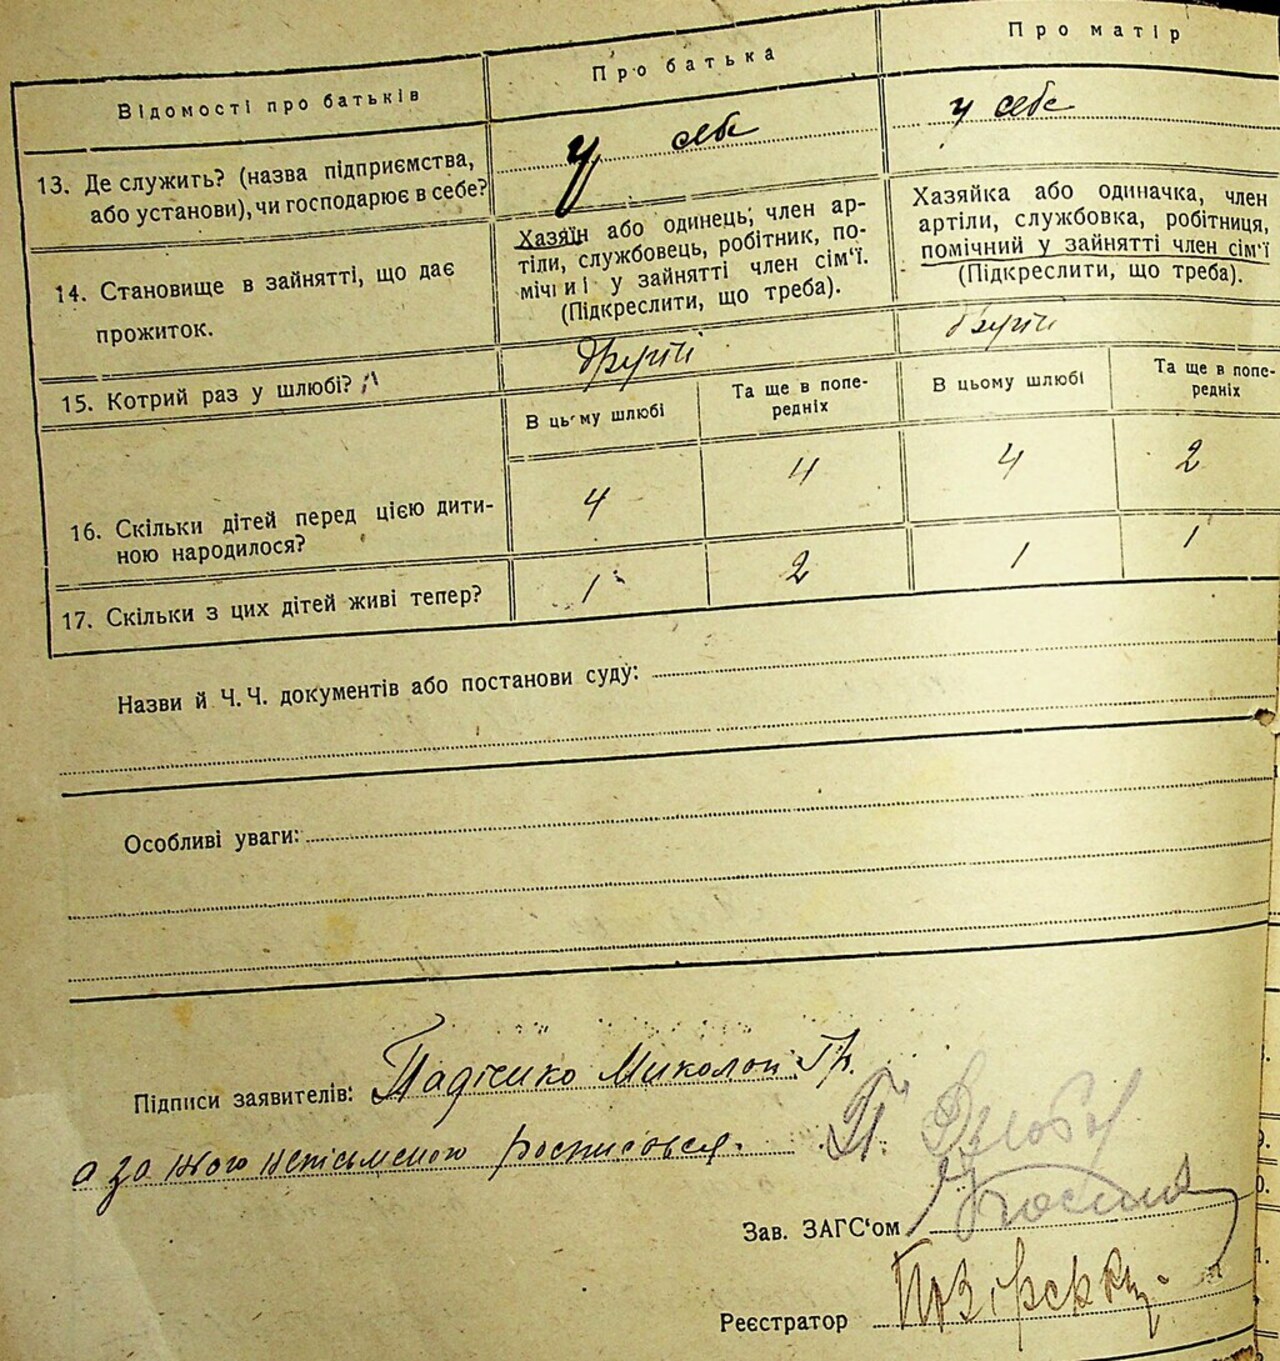 Відомості про батьків
Про батька
Про матір
13. Де служить? (назва підприємства,
або установи), чи господарює в себе?
у себе
у себе
14. Становище в зайнятті, що дає
прожиток.
Хазяїн або одинець, член ар-
тілі, службовець, робітник, по-
мічний у зайнятті член сім'ї.
(Підкреслити, що треба).
Хазяйка або одиначка, член
артіли, службовка, робітниця,
помічний у зайнятті член сім'ї
(Підкреслити, що треба).
15. Котрий раз у шлюбі?
другій
другій
В цьому шлюбі
Та ще в попе-
редніх
В цьому шлюбі
Та ще в попе-
редніх
16. Скільки дітей перед цією дити-
ною народилося?
4
4
4
2
17. Скільки з цих дітей живі тепер?
1
2
1
1
Назви й Ч. Ч. документів або постанови суду:
Особливі уваги:
Підписи заявителів: Миколой Гр.
а за його
Зав. ЗАГС'ом
Реєстратор